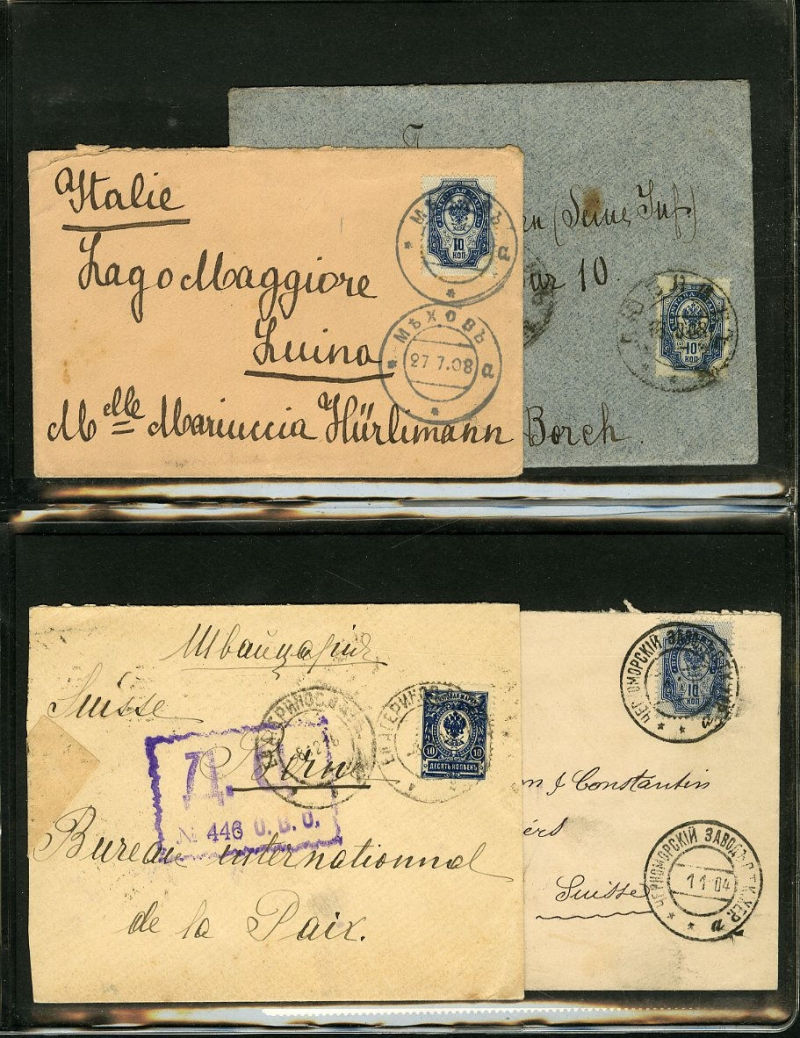 Italie
Lago Maggiore
Luino
Mlle Mariuccia Hürlimann
МѢХОВЪ
10
КОП
а
МѢХОВЪ
27 7.08
а
(Seine Inf)
10
10
КОП
Borch
Швайцарія
Suisse
Berne
Bureau international
de la Paix.
ЕКАТЕРИНОСЛАВЪ
10 10
ДЕСЯТЬ КОПѢЕКЪ
Д. Ц.
№ 446 О.В.О.
ЧЕРНОМОРСКІЙ ЗАВОДЪ
10
КОП
а
Constantin
Suisse
ЧЕРНОМОРСКІЙ ЗАВОДЪ П.Т.К. ХЕР.
11 04
а